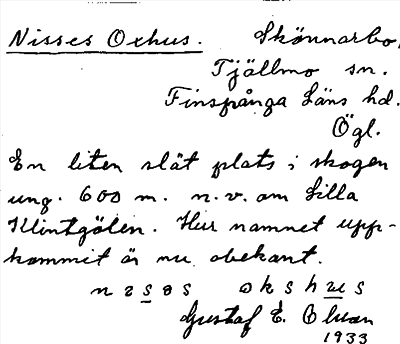 Nisses Oxhus. Skönnarbo,
Tjällmo sn.
Finspånga Läns hd.
Ögl.
En liten slät plats i skogen
ung. 600 m. n.v. om Lilla
Klintgölen. Hur namnet upp-
kommit är nu obekant.
okshus
Gustaf E. Olson
1933